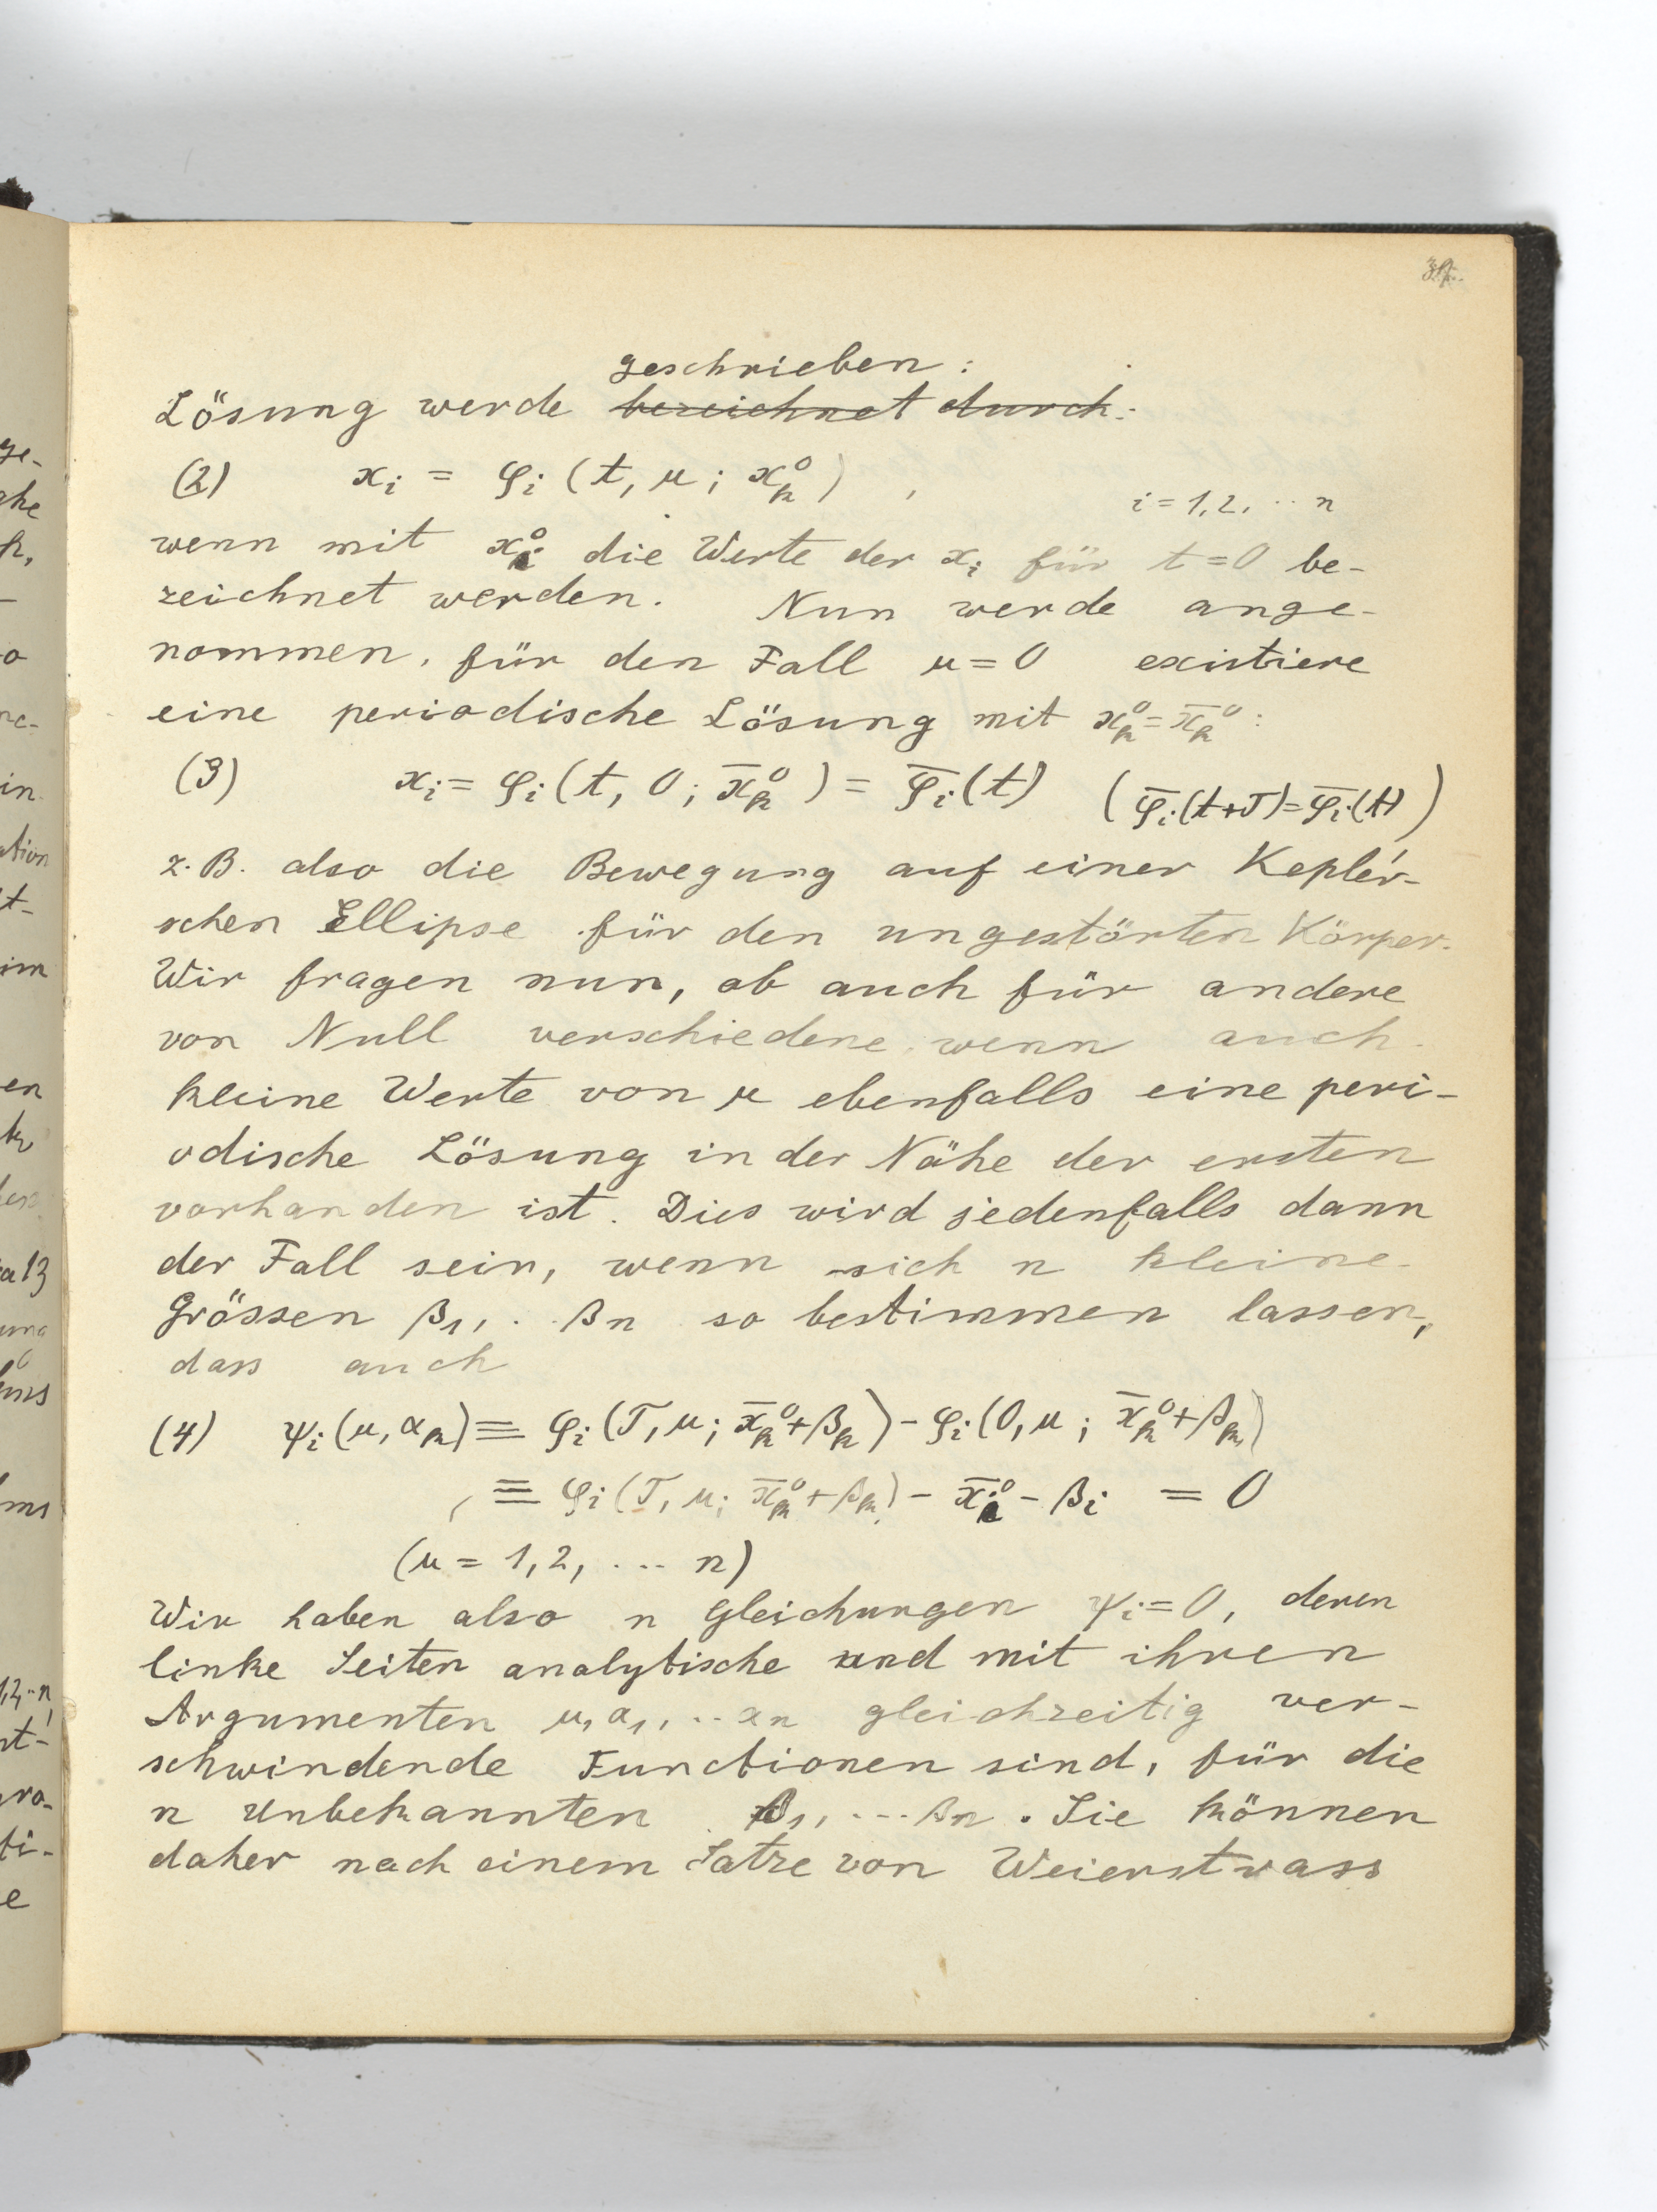 geschrieben:
Lösung werde bezeichnet durch:
(2) xᵢ = φᵢ (t, μ; xₖ⁰) , i = 1, 2, ·· n
wenn mit xᵢ⁰ die Werte der xᵢ für t = 0 be-
zeichnet werden. Nun werde ange-
nommen, für den Fall μ = 0 existiere
eine periodische Lösung mit xₖ⁰ = x̄ₖ⁰:
(3) xᵢ = φᵢ (t, 0; x̄ₖ⁰) = φ̄ᵢ(t) (φ̄ᵢ(t+T) = φ̄ᵢ(t))
z. B. also die Bewegung auf einer Kepler'-
schen Ellipse für den ungestörten Körper.
Wir fragen nun, ob auch für andere
von Null verschiedene, wenn auch
kleine Werte von μ ebenfalls eine peri-
odische Lösung in der Nähe der ersten
vorhanden ist. Dies wird jedenfalls dann
der Fall sein, wenn sich n kleine
Grössen β₁, .. βn so bestimmen lassen,
dass auch
(4) ψᵢ (μ, αₖ) ≡ φᵢ (T, μ; x̄ₖ⁰ + βₖ) - φᵢ (0, μ; x̄ₖ⁰ + βₖ)
≡ φᵢ (T, μ; x̄ₖ⁰ + βₖ) - x̄ᵢ⁰ - βᵢ = 0
(μ = 1, 2, ... n)
Wir haben also n Gleichungen ψᵢ = 0, deren
linke Seiten analytische und mit ihren
Argumenten μ, α₁, .. αn gleichzeitig ver-
schwindende Functionen sind, für die
n Unbekannten β₁, ... βn. Sie können
daher nach einem Satze von Weierstrass
ge-
en
in
im
e